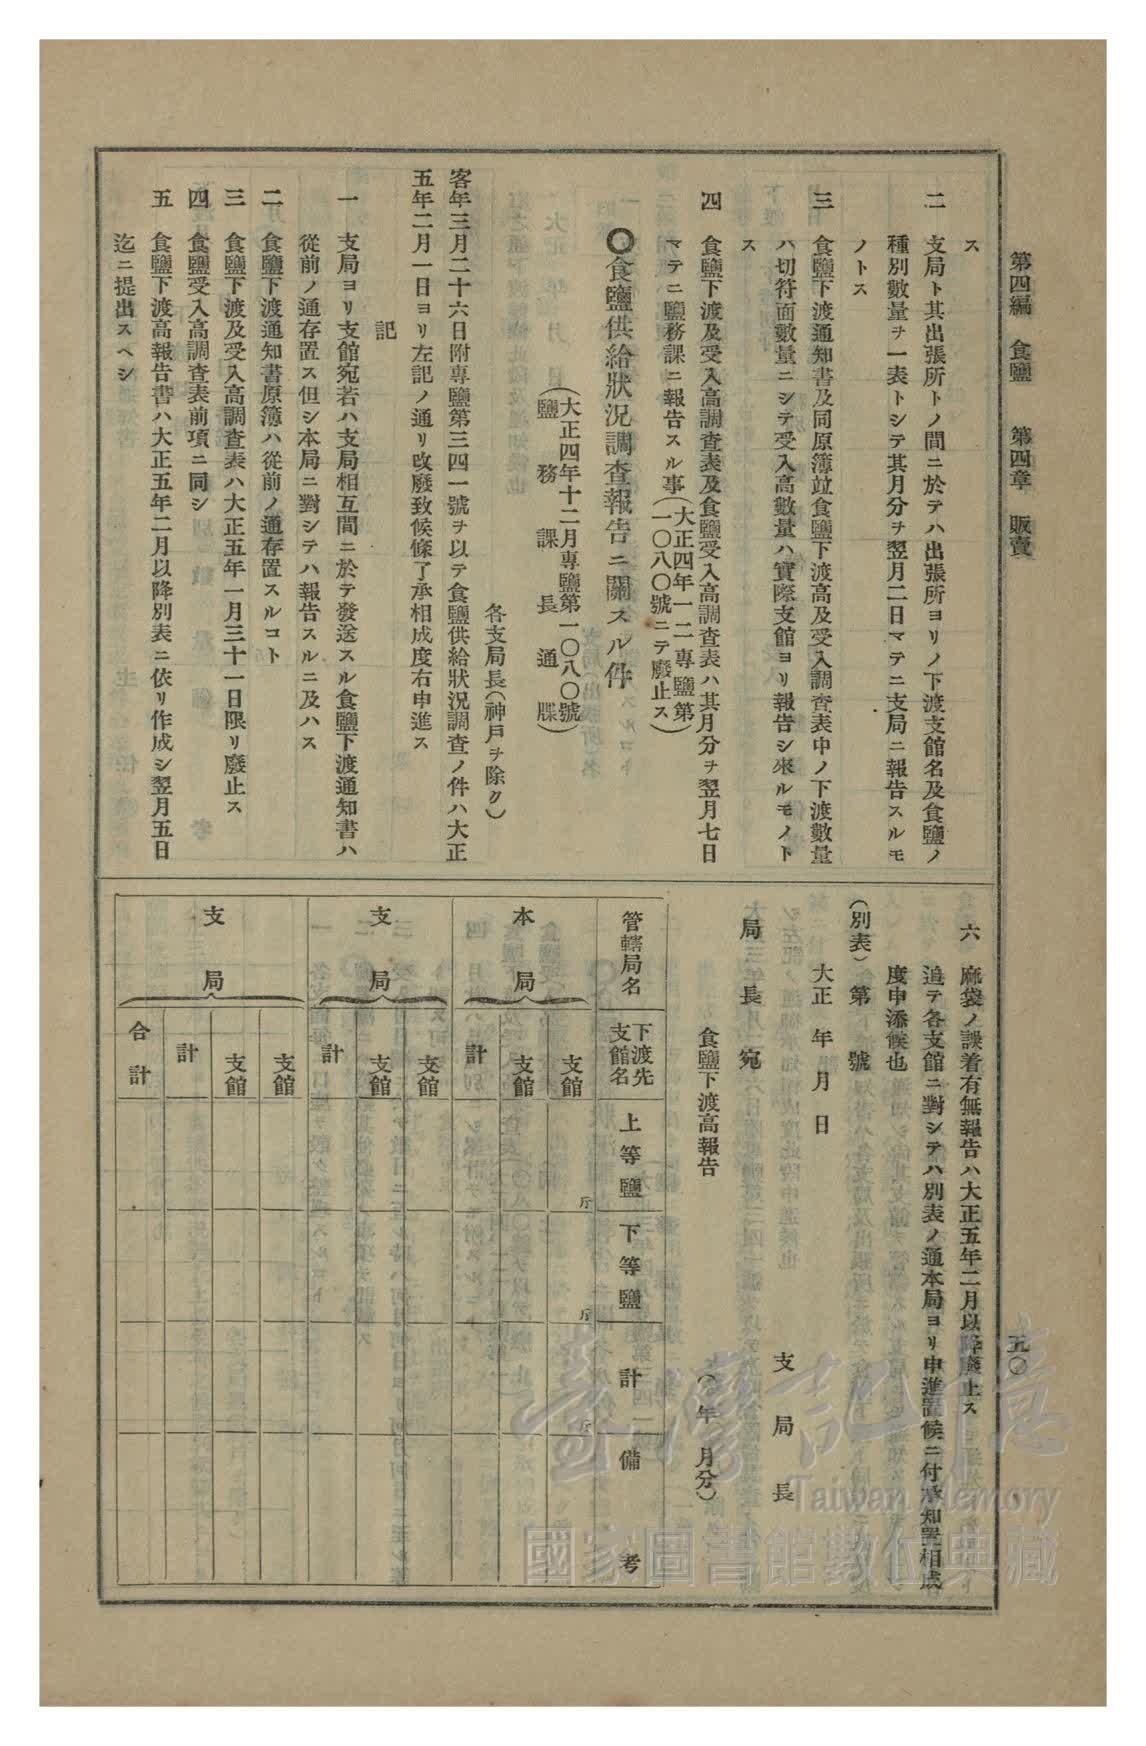 第四編 食鹽 第四章 販賣
五〇
ス
二 支局ト其出張所トノ間ニ於テハ出張所ヨリノ下渡支館名及食鹽ノ
種別數量ヲ一表トシテ其月分ヲ翌月二日マテニ支局ニ報告スルモ
ノトス
三 食鹽下渡通知書及同原簿竝食鹽下渡高及受入調査表中ノ下渡數量
ハ切符面數量ニシテ受入高數量ハ實際支館ヨリ報告シ來ルモノト
ス
四 食鹽下渡及受入高調查表及食鹽受入高調查表ハ其月分ヲ翌月七日
マテニ鹽務課ニ報告スル事(大正四年一二專鹽第
一〇八〇號ニテ廢止ス)
〇食鹽供給狀況調查報告ニ關スル件
(大正四年十二月專鹽第一〇八〇號
鹽務課長通牒)
各支局長(神戸ヲ除ク)
客年三月二十六日附專鹽第三四一號ヲ以テ食鹽供給狀況調查ノ件ハ大正
五年二月一日ヨリ左記ノ通リ改廢致候條了承相成度右申進ス
記
一 支局ヨリ支館宛若ハ支局相互間ニ於テ發送スル食鹽下渡通知書ハ
從前ノ通存置ス但シ本局ニ對シテハ報告スルニ及ハス
二 食鹽下渡通知書原簿ハ從前ノ通存置スルコト
三 食鹽下渡及受入高調查表ハ大正五年一月三十一日限リ廢止ス
四 食鹽受入高調查表前項ニ同シ
五 食鹽下渡高報告書ハ大正五年二月以降別表ニ依リ作成シ翌月五日
迄ニ提出スヘシ
六 麻袋ノ誤着有無報告ハ大正五年二月以降廢止ス
追テ各支館ニ對シテハ別表ノ通本局ヨリ申進置候ニ付承知置相成
度申添候也
(別表) 第 號
大正 年 月 日
支局長
局長宛
食鹽下渡高報告
( 年 月分)
管轄局名
下渡先
支館名
上等鹽
下等鹽
計
備考
本局
支館
斤
斤
斤
支館
計
支局
支館
支館
計
支局
支館
支館
計
合計
臺灣記憶
Taiwan Memory
國家圖書館數位典藏